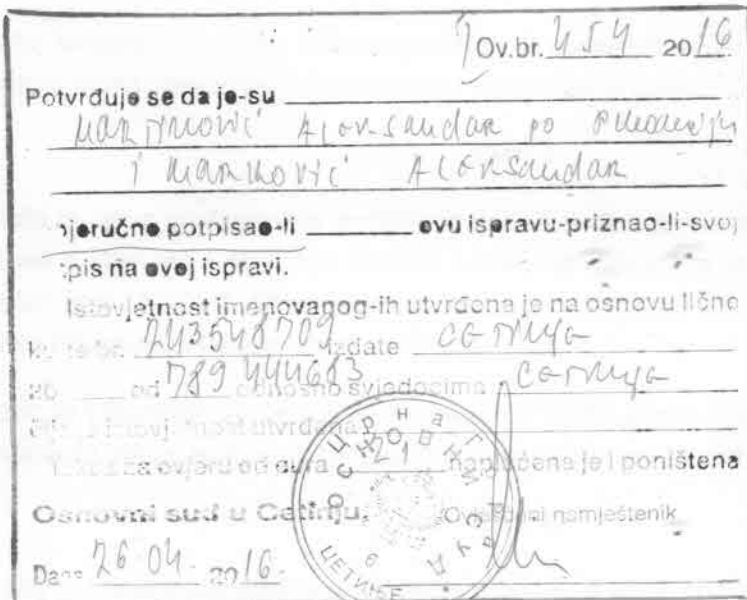 Ov.br. 454 2016
Potvrđuje se da je-su
Martinović Aleksandar po
i Marković Aleksandar
jeručno potpisao-li ovu ispravu-priznao-li-svoj
pis na ovoj ispravi.
Istovjetnost imenovanog-ih utvrđena je na osnovu lične
243548709 izdate Cetinje
od 789444683 odnosno svjedocima Cetinje
utvrđena
za ovjeru od eura naplaćena je i poništena
Osnovni sud u Cetinju, namještenik
Dana 26 04. 2016.
Црна Гора
ОСНОВНИ СУД
ЦЕТИЊЕ
6